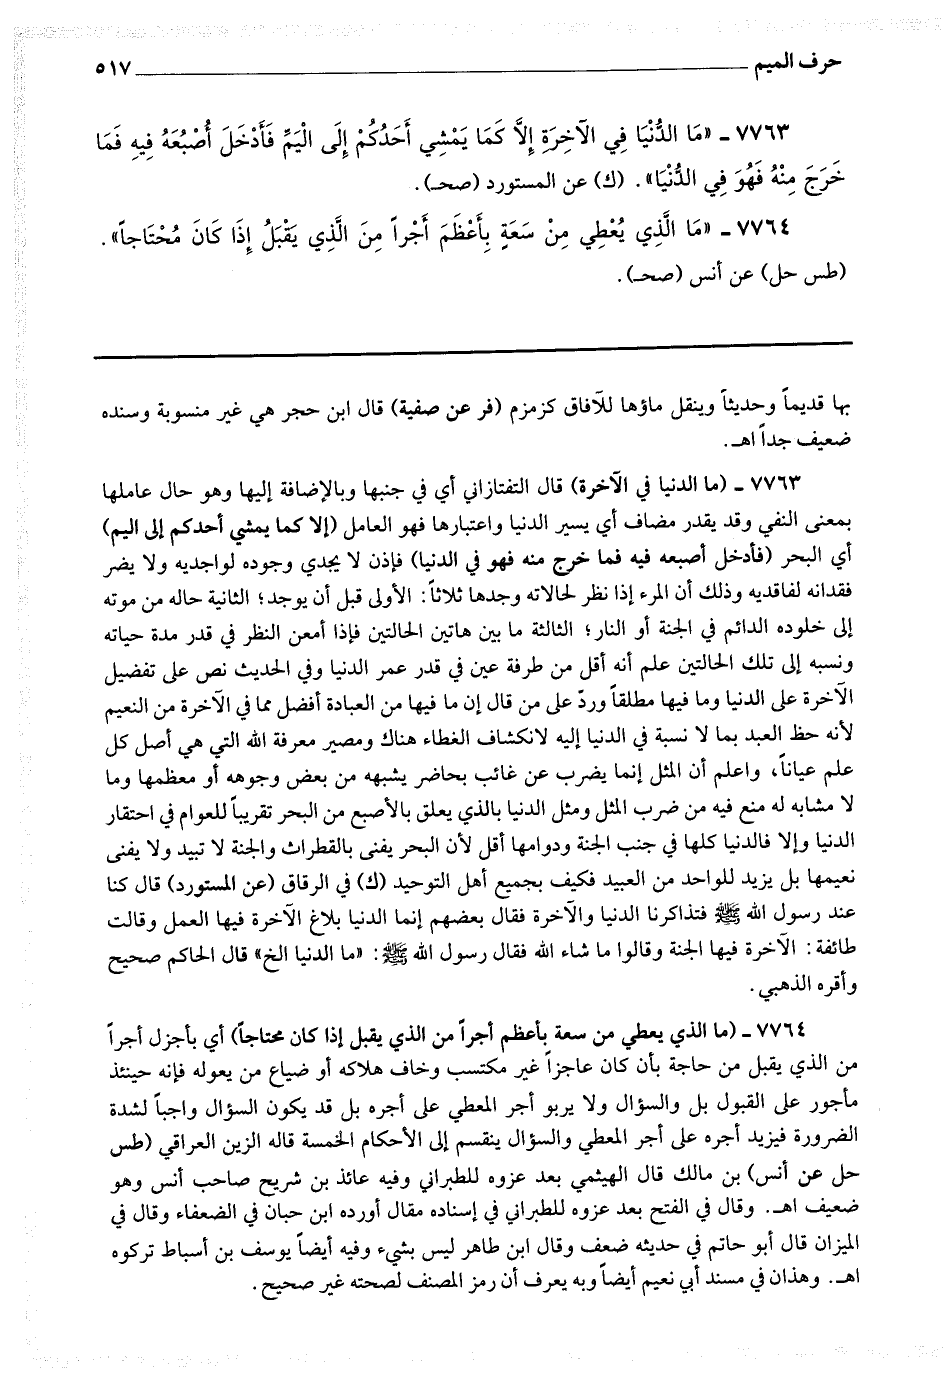 حرف الميم ٥١٧
٧٧٦٣ ـ «مَا الدُّنْيَا فِي الآخِرَةِ إِلَّا كَمَا يَمْشِي أَحَدُكُمْ إِلَى الْيَمِّ فَأَدْخَلَ أُصْبُعَهُ فِيهِ فَمَا
خَرَجَ مِنْهُ فَهُوَ فِي الدُّنْيَا». (ك) عن المستورد (صحـ).
٧٧٦٤ ـ «مَا الَّذِي يُعْطِي مِنْ سَعَةٍ بِأَعْظَمَ أَجْراً مِنَ الَّذِي يَقْبَلُ إِذَا كَانَ مُحْتَاجاً».
(طس حل) عن أنس (صحـ).
بها قديماً وحديثاً وينقل ماؤها للآفاق كزمزم (فر عن صفية) قال ابن حجر هي غير منسوبة وسنده
ضعيف جداً اهـ.
٧٧٦٣ ـ (ما الدنيا في الآخرة) قال التفتازاني أي في جنبها وبالإضافة إليها وهو حال عاملها
بمعنى النفي وقد يقدر مضاف أي يسير الدنيا واعتبارها فهو العامل (إلا كما يمشي أحدكم إلى اليم)
أي البحر (فأدخل أصبعه فيه فما خرج منه فهو في الدنيا) فإذن لا يجدي وجوده لواجديه ولا يضر
فقدانه لفاقديه وذلك أن المرء إذا نظر لحالاته وجدها ثلاثاً: الأولى قبل أن يوجد؛ الثانية حاله من موته
إلى خلوده الدائم في الجنة أو النار؛ الثالثة ما بين هاتين الحالتين فإذا أمعن النظر في قدر مدة حياته
ونسبه إلى تلك الحالتين علم أنه أقل من طرفة عين في قدر عمر الدنيا وفي الحديث نص على تفضيل
الآخرة على الدنيا وما فيها مطلقاً وردّ على من قال إن ما فيها من العبادة أفضل مما في الآخرة من النعيم
لأنه حظ العبد بما لا نسبة في الدنيا إليه لانكشاف الغطاء هناك ومصير معرفة الله التي هي أصل كل
علم عياناً، واعلم أن المثل إنما يضرب عن غائب بحاضر يشبهه من بعض وجوهه أو معظمها وما
لا مشابه له منع فيه من ضرب المثل ومثل الدنيا بالذي يعلق بالأصبع من البحر تقريباً للعوام في احتقار
الدنيا وإلا فالدنيا كلها في جنب الجنة ودوامها أقل لأن البحر يفنى بالقطرات والجنة لا تبيد ولا يفنى
نعيمها بل يزيد للواحد من العبيد فكيف بجميع أهل التوحيد (ك) في الرقاق (عن المستورد) قال كنا
عند رسول الله ﷺ فتذاكرنا الدنيا والآخرة فقال بعضهم إنما الدنيا بلاغ الآخرة فيها العمل وقالت
طائفة: الآخرة فيها الجنة وقالوا ما شاء الله فقال رسول الله ﷺ: «ما الدنيا الخ» قال الحاكم صحيح
وأقره الذهبي.
٧٧٦٤ ـ (ما الذي يعطي من سعة بأعظم أجراً من الذي يقبل إذا كان محتاجاً) أي بأجزل أجراً
من الذي يقبل من حاجة بأن كان عاجزاً غير مكتسب وخاف هلاكه أو ضياع من يعوله فإنه حينئذ
مأجور على القبول بل والسؤال ولا يربو أجر المعطي على أجره بل قد يكون السؤال واجباً لشدة
الضرورة فيزيد أجره على أجر المعطي والسؤال ينقسم إلى الأحكام الخمسة قاله الزين العراقي (طس
حل عن أنس) بن مالك قال الهيثمي بعد عزوه للطبراني وفيه عائذ بن شريح صاحب أنس وهو
ضعيف اهـ. وقال في الفتح بعد عزوه للطبراني في إسناده مقال أورده ابن حبان في الضعفاء وقال في
الميزان قال أبو حاتم في حديثه ضعف وقال ابن طاهر ليس بشيء وفيه أيضاً يوسف بن أسباط تركوه
اهـ. وهذان في مسند أبي نعيم أيضاً وبه يعرف أن رمز المصنف لصحته غير صحيح.